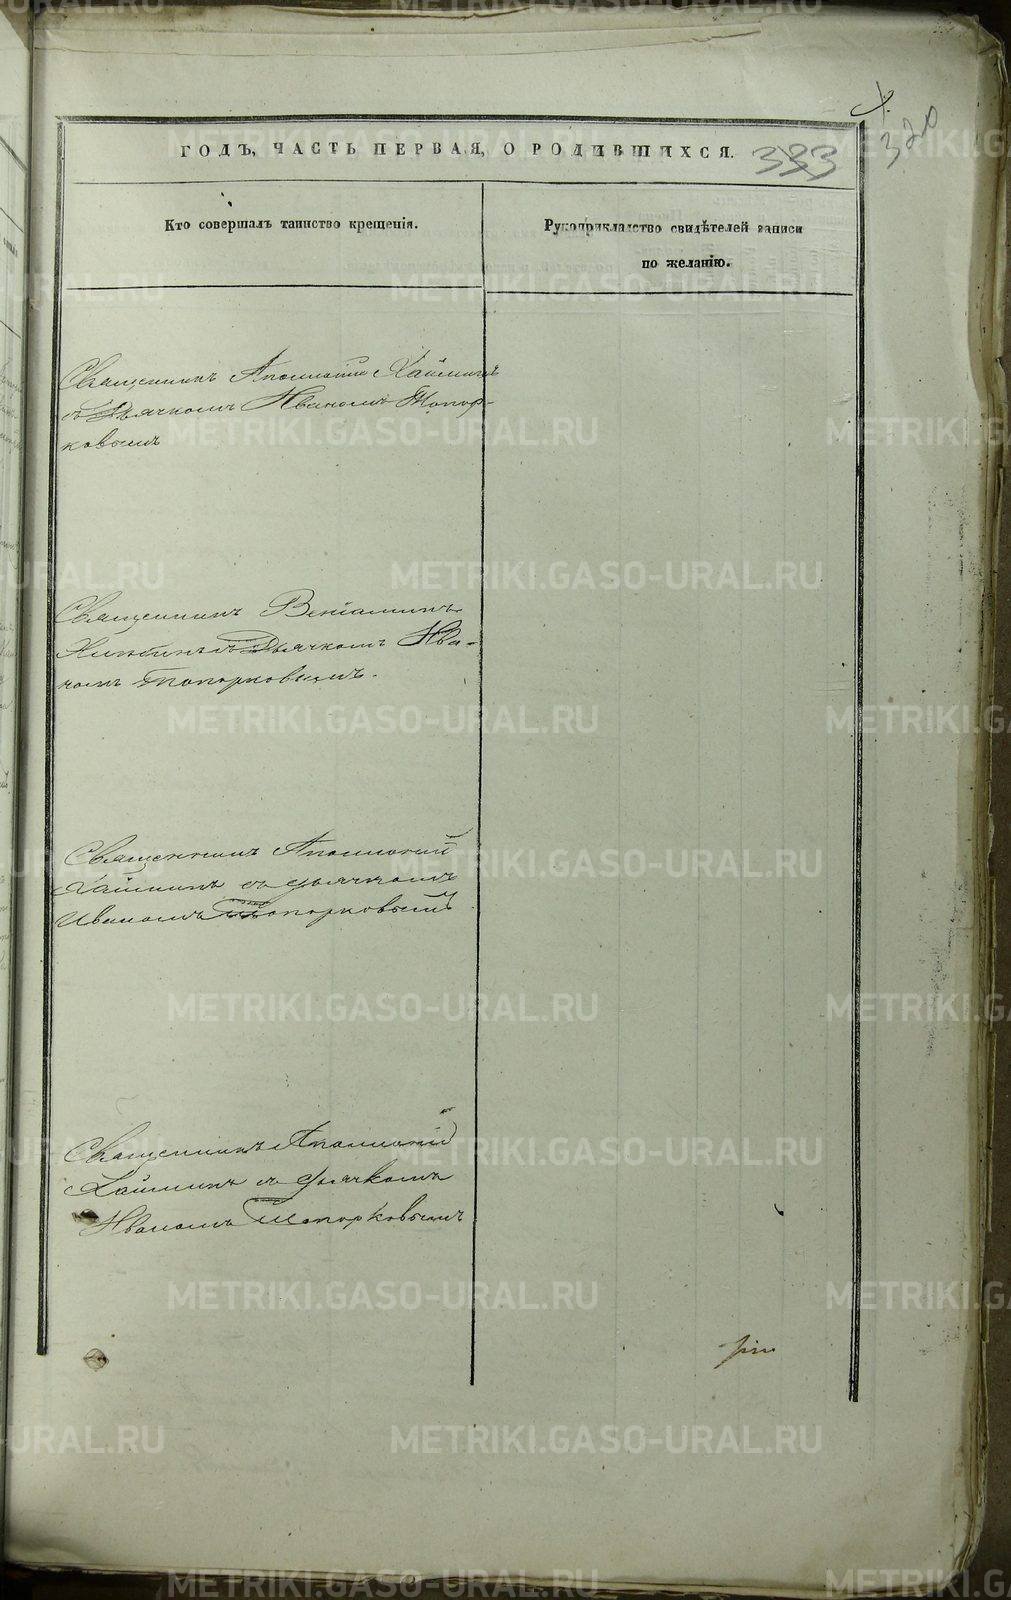 320
ГОДЪ, ЧАСТЬ ПЕРВАЯ, О РОДИВШИХСЯ. 333
Кто совершалъ таинство крещенія.
Рукоприкладство свидѣтелей записи
по желанію.
Священникъ Аполлоній Хайминъ
съ Дьячкомъ Иваномъ Топор-
ковымъ
Священникъ Веніаминъ
съ Дьячкомъ Ива-
номъ Топорковымъ.
Священникъ Аполлоній
Хайминъ съ дьячкомъ
Иваномъ Топорковымъ
Священникъ Аполлоній
Хайминъ съ дьячкомъ
Иваномъ Топорковымъ
METRIKI.GASO-URAL.RU